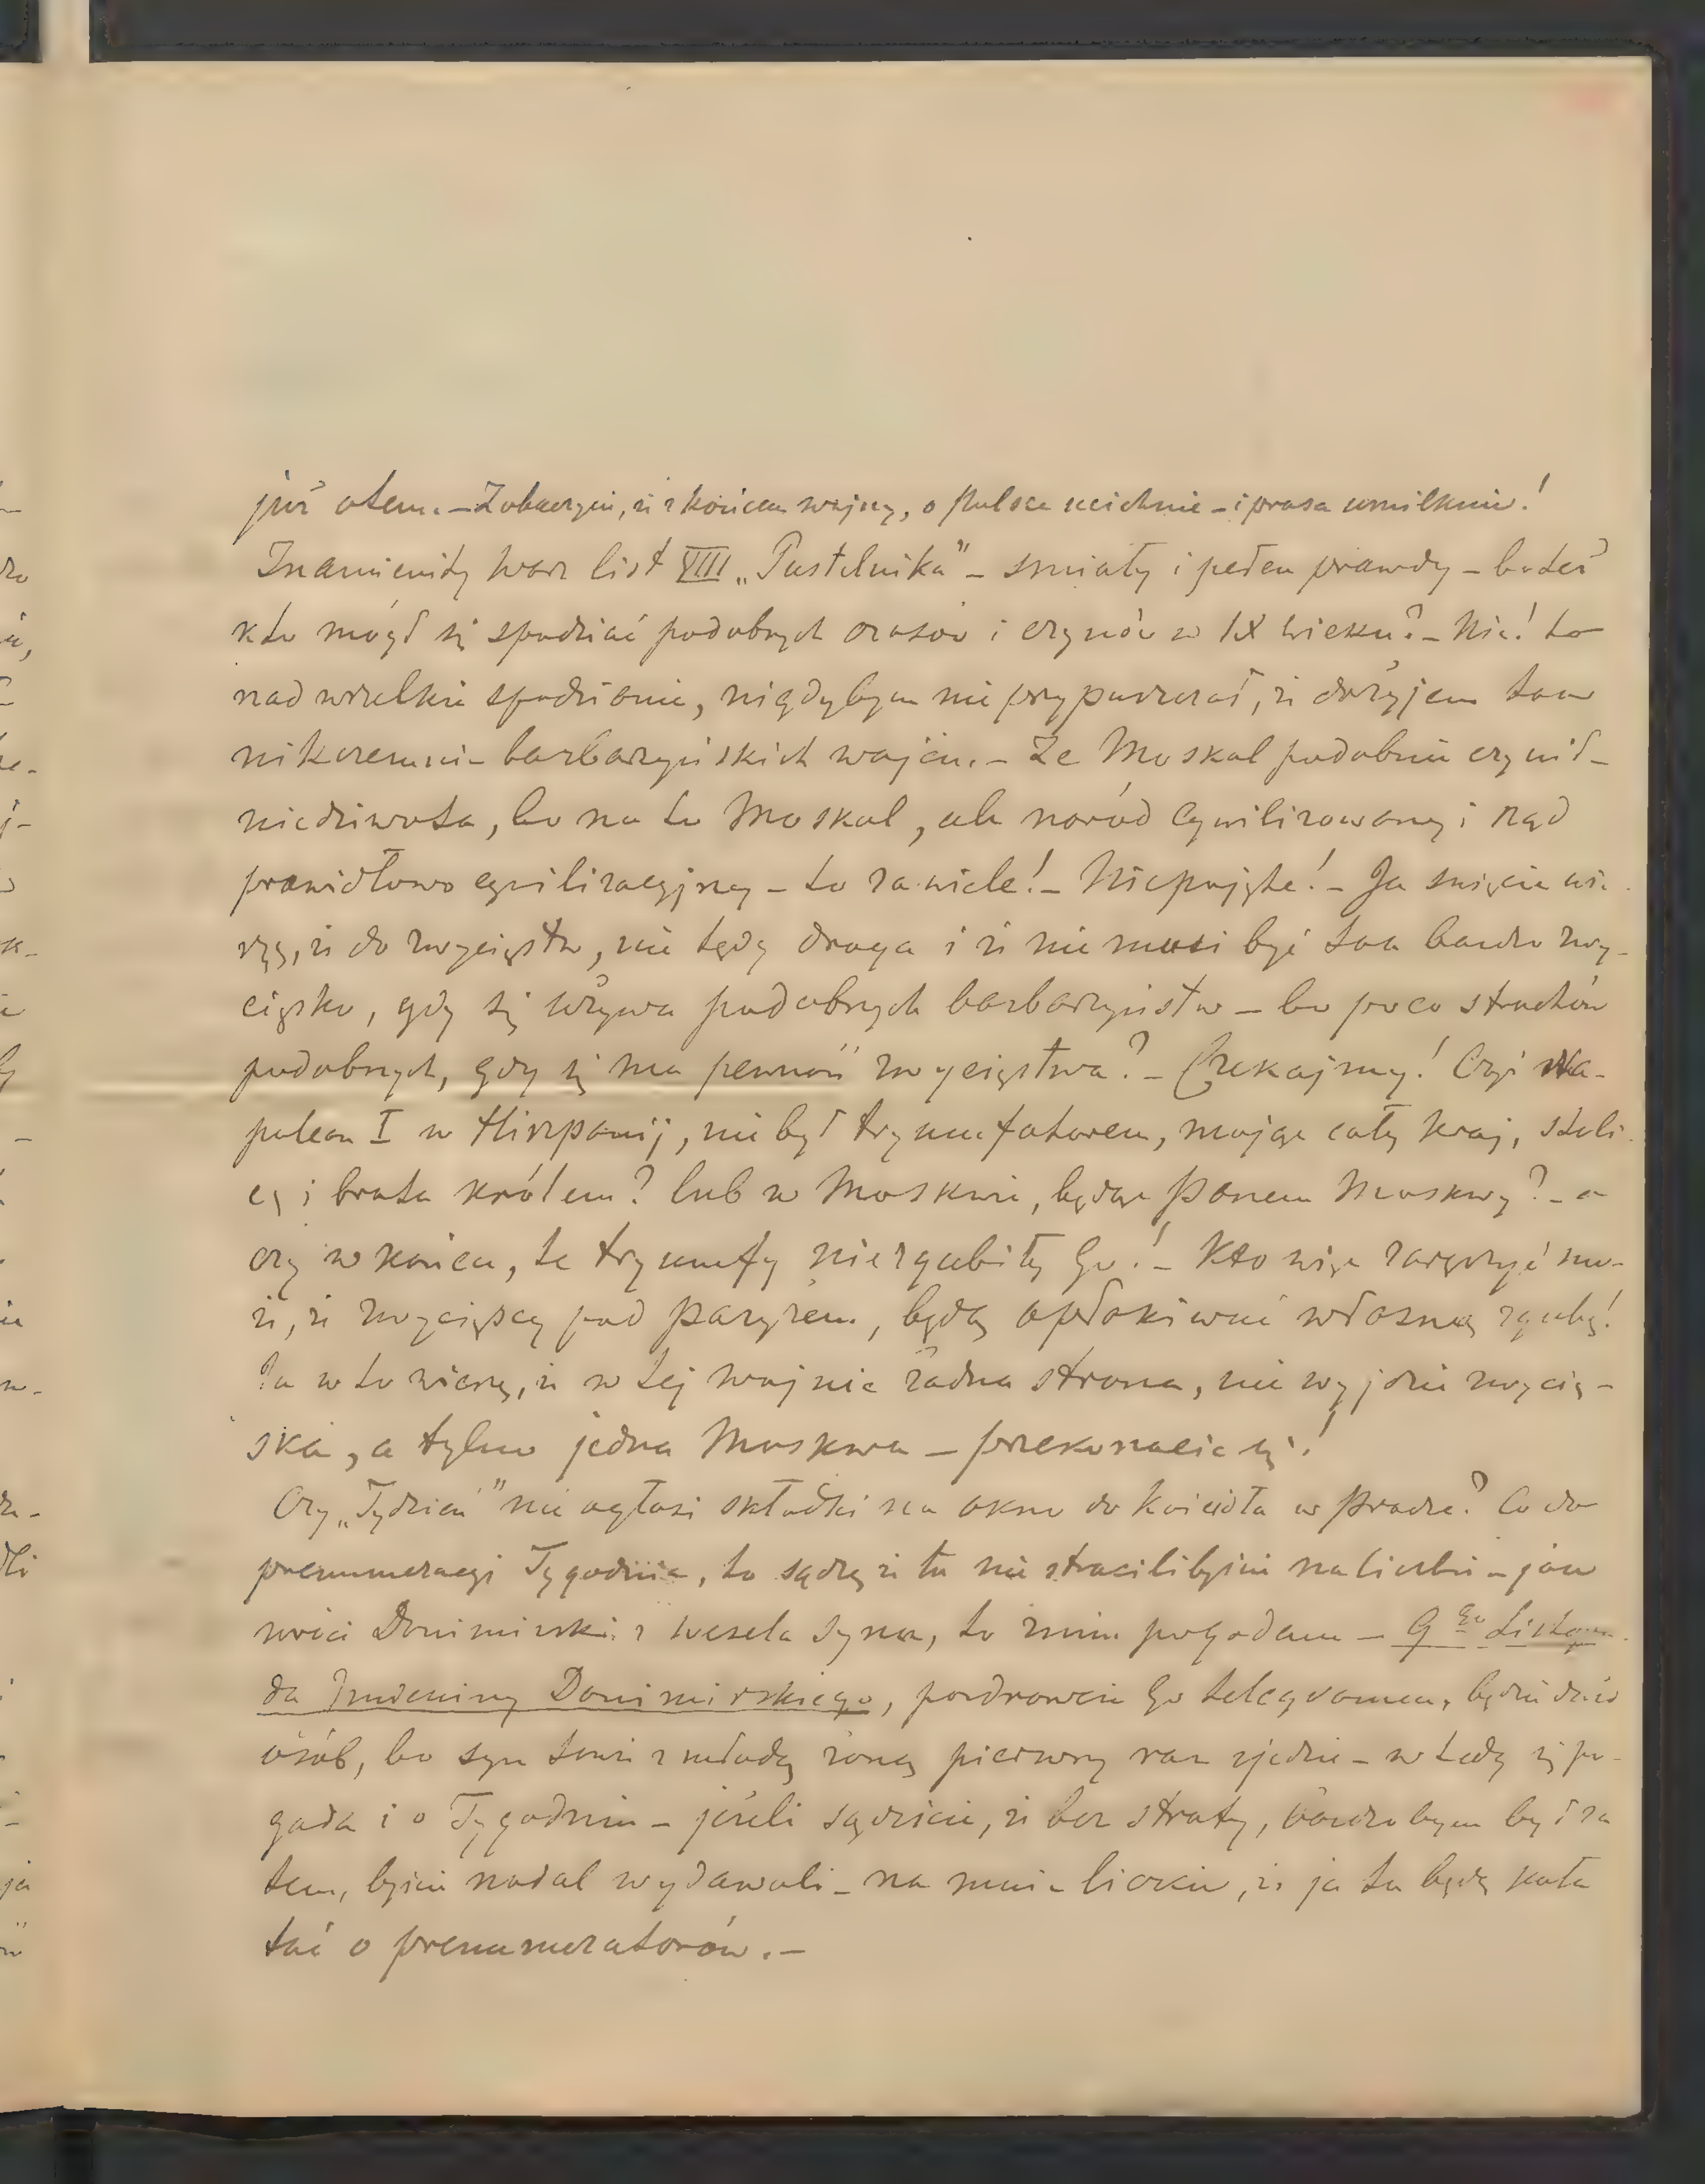 już otem. – Zobaczycie, iż z końcem wojny, o Polsce ucichnie – i prasa umilknie!
Znamienity Wasz list VIII „Pustelnika" – smiały i pełen prawdy – bo też
kto mógł się spodziać podobnych czasów i czynów w IX wieku? – Nie! to
nad wszelkie spodzianie, nigdybym nie przypuszczał, iż dożyjem tak
nikczemnie barbarzyńskich wojen. – Że Moskal podobnie czynił –
niedziwota, bo na to Moskal, ale naród cywilizowany i rząd
prawidłowo cywilizacyjny – to za wiele! – Niepojęte! – Ja święcie wie
rzę, iż do zwycięstw, nie tędy droga i iż nie musi być tak bardzo zwy-
cięsko, gdy się używa podobnych barbarzyństw – bo poco strachów
podobnych, gdy się ma pewność zwycięstwa? – Czekajmy! Czyż Na-
poleon I w Hiszpanij, nie był tryumfatorem, mając cały kraj, stoli
cę i brata królem? lub w Moskwie, będąc panem Moskwy? – a
czy w końcu, te tryumfy niezgubiły Go! – Kto więc zaręczyć mo-
że, iż zwycięzcy pod Paryżem, będą opłakiwać własną zgubę!
Ja w to wierzę, iż w tej wojnie żadna strona, nie wyjdzie zwycię-
ska, a tylko jedna Moskwa – przekonacie się!
Czy „Tydzień" nie ogłosi składki na okno do kościoła w Pradze? Co do
prenumeracyi Tygodnia, to sądzę iż tu nie stracilibyście na liczbie – jak
wróci Donimirski z wesela syna, to znim pogadam – 9 go Listopa
da Donimirskiego, pozdrowcie Go telegramem, będzie dużo
osób, bo syn tamże z młodą żoną pierwszy raz zjedzie – w tedy się po-
gada i o Tygodniu – jeżeli sądzicie, iż bez straty, bardzo bym był za
tem, byście nadal wydawali – na mnie liczcie, iż ja tu będę koła
tać o prenumeratorów. –